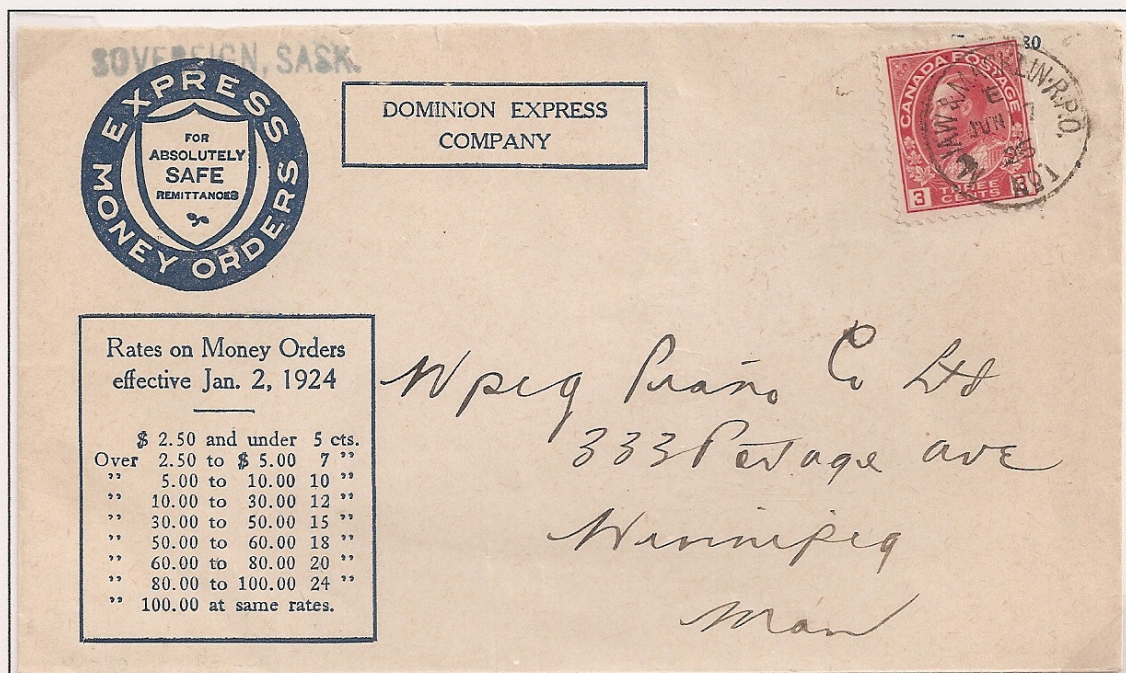 SOVEREIGN, SASK.
EXPRESS MONEY ORDERS
FOR
ABSOLUTELY
SAFE
REMITTANCES
DOMINION EXPRESS
COMPANY
80
CANADA POSTAGE
3 THREE CENTS
JAW & MACKLIN·R.P.O.
E
JUN
Rates on Money Orders
effective Jan. 2, 1924
$ 2.50 and under 5 cts.
Over 2.50 to $ 5.00 7 ”
” 5.00 to 10.00 10 ”
” 10.00 to 30.00 12 ”
” 30.00 to 50.00 15 ”
” 50.00 to 60.00 18 ”
” 60.00 to 80.00 20 ”
” 80.00 to 100.00 24 ”
” 100.00 at same rates.
Wpeg Piano Co Ltd
333 Portage ave
Winnipeg
Man